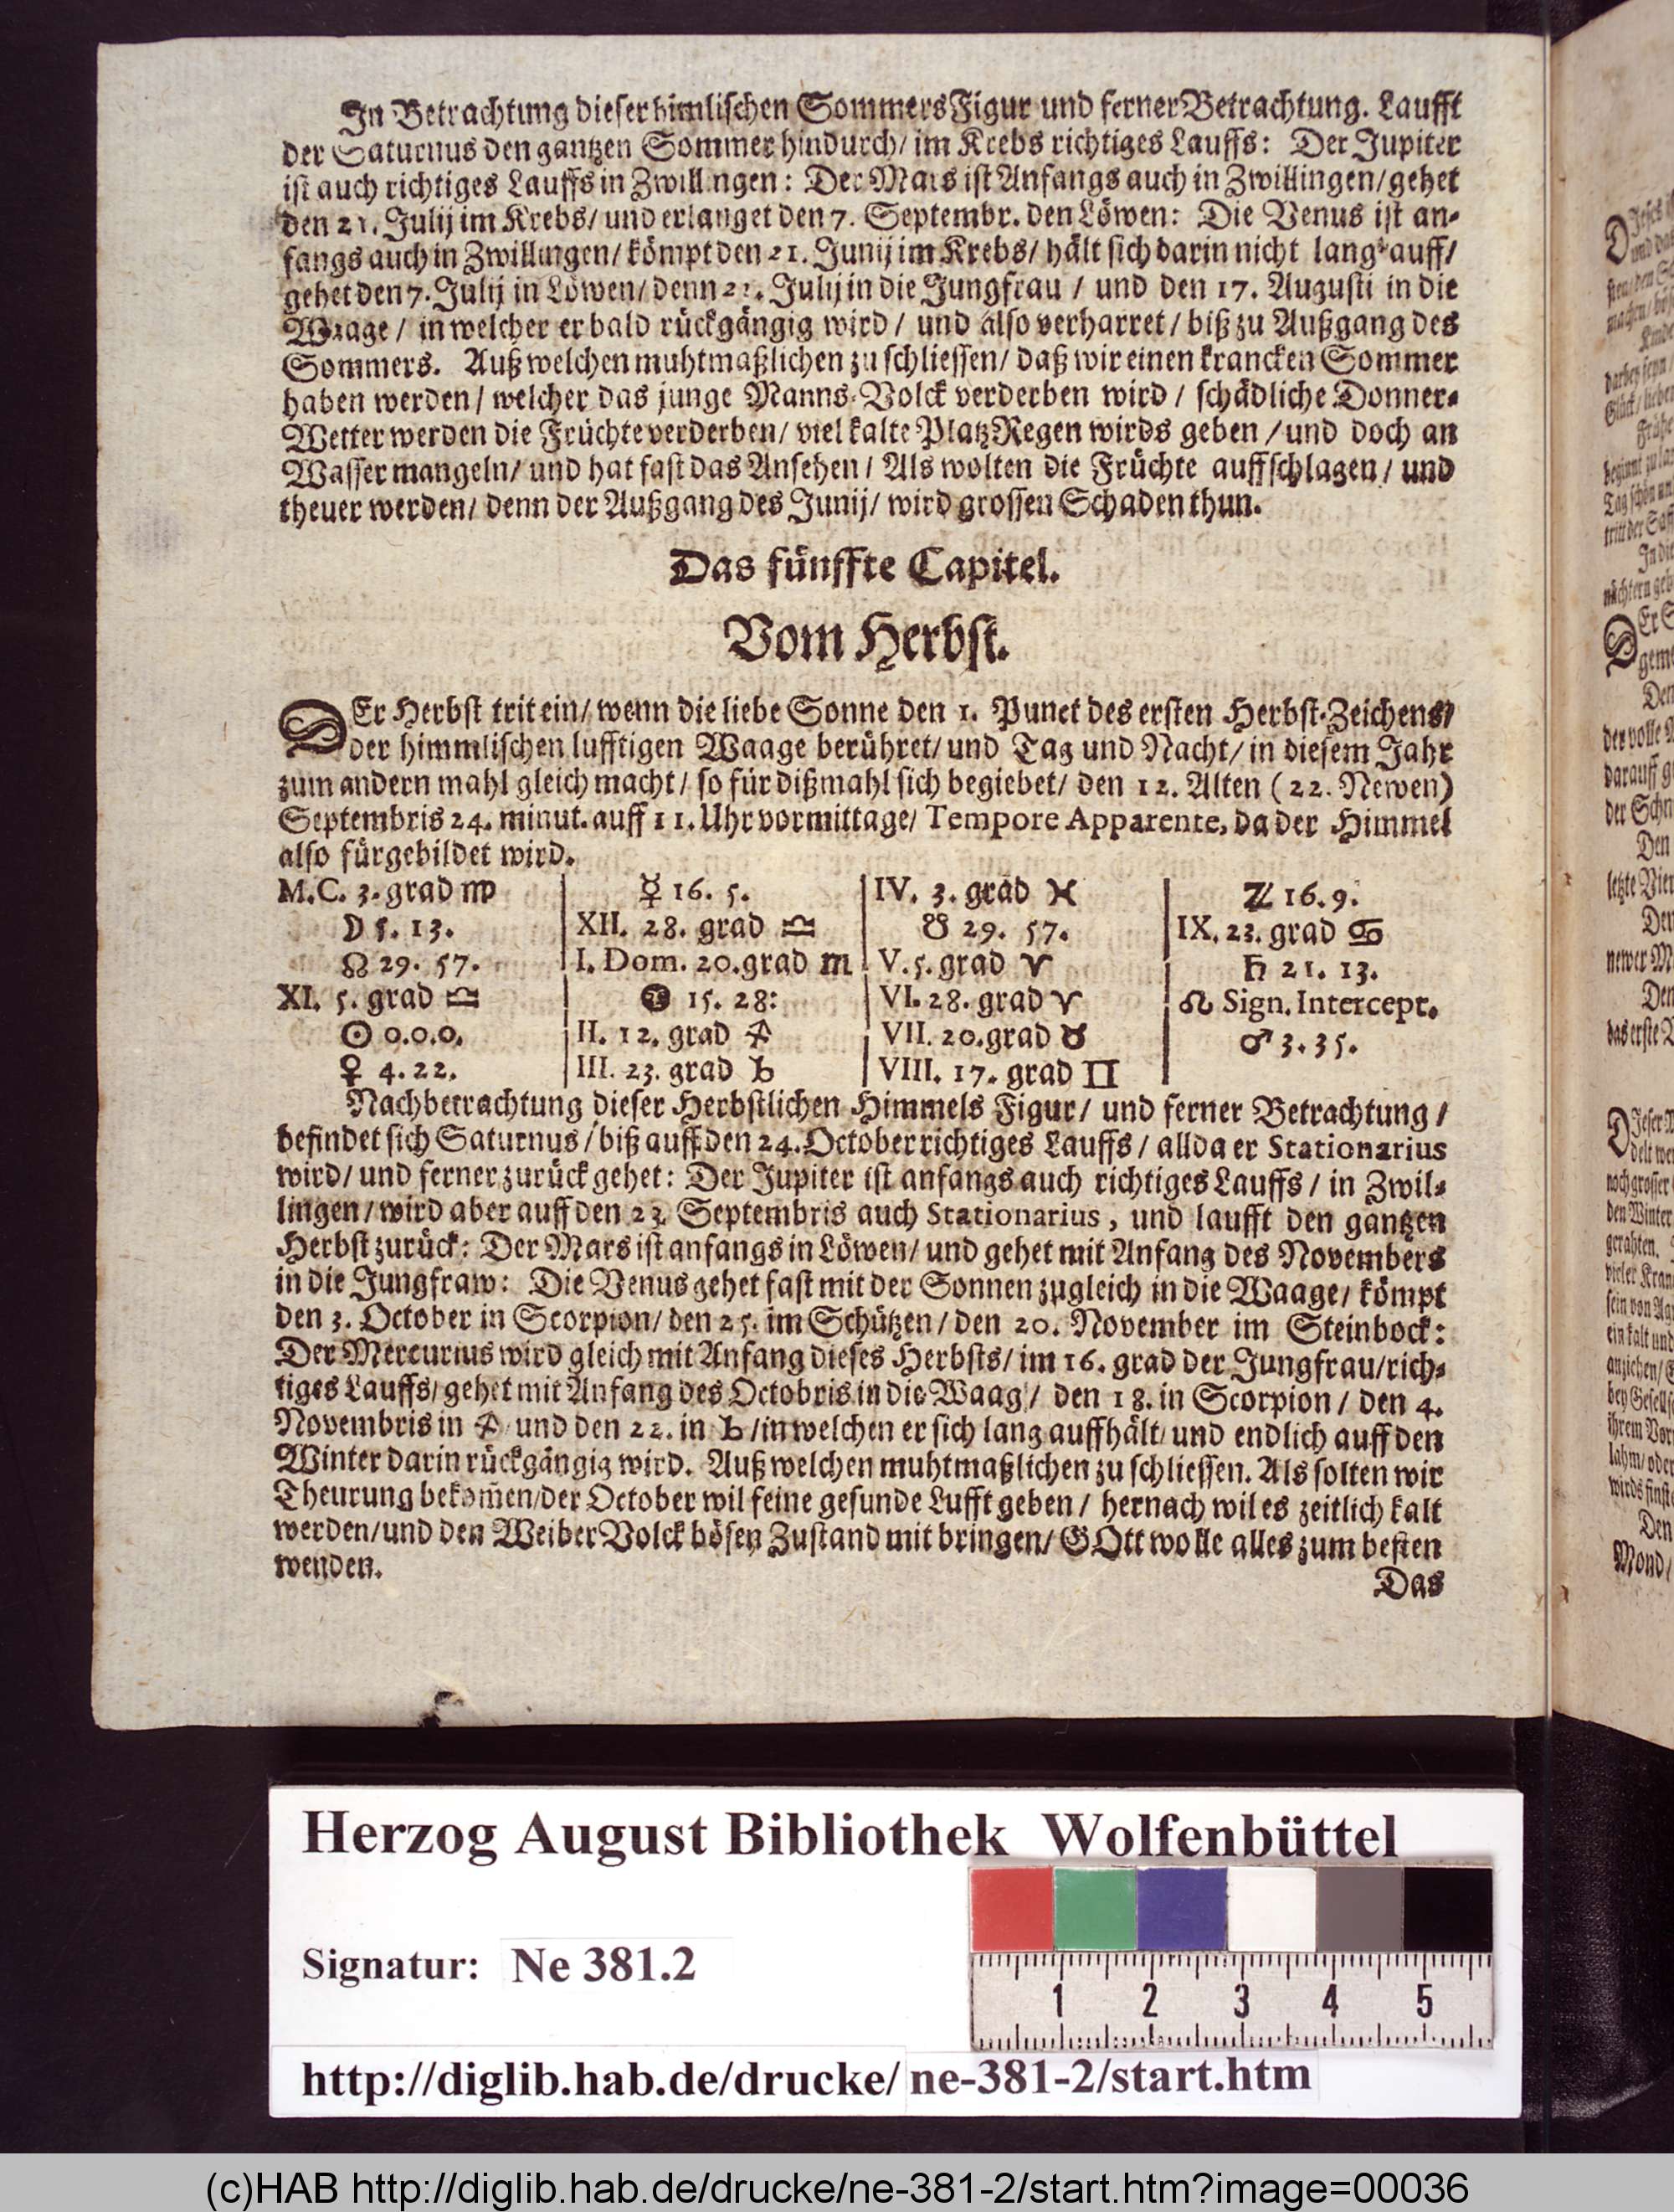 In Betrachtung dieser himlischen SommersFigur und ferner Betrachtung. Laufft
der Saturnus den gantzen Sommer hindurch/ im Krebs richtiges Lauffs: Der Jupiter
ist auch richtiges Lauffs in Zwillingen: Der Mars ist Anfangs auch in Zwillingen/ gehet
den 21. Julij im Krebs/ und erlanget den 7. Septembr. den Löwen: Die Venus ist an-
fangs auch in Zwillingen/ kömpt den 21. Junij im Krebs/ hält sich darin nicht lang auff/
gehet den 7. Julij in Löwen/ denn 21. Julij in die Jungfrau / und den 17. Augusti in die
Waage / in welcher er bald rückgängig wird / und also verharret / biß zu Außgang des
Sommers. Auß welchen muhtmaßlichen zu schliessen/ daß wir einen krancken Sommer
haben werden / welcher das junge Manns-Volck verderben wird / schädliche Donner-
Wetter werden die Früchte verderben/ viel kalte PlatzRegen wirds geben / und doch an
Wasser mangeln/ und hat fast das Ansehen / Als wolten die Früchte auffschlagen / und
theuer werden/ denn der Außgang des Junij/ wird grossen Schaden thun.
Das fünffte Capitel.
Vom Herbst.
DEr Herbst trit ein/ wenn die liebe Sonne den 1. Punct des ersten Herbst-Zeichens/
der himmlischen lufftigen Waage berühret/ und Tag und Nacht/ in diesem Jahr
zum andern mahl gleich macht / so für dißmahl sich begiebet/ den 12. Alten ( 22. Newen)
Septembris 24. minut. auff 11. Uhr vormittage/ Tempore Apparente, da der Himmel
also fürgebildet wird.
M.C. 3. grad ♍ | ☿ 16. 5. | IV. 3. grad ♓ | ♃ 16. 9.
☽ 5. 13. | XII. 28. grad ♎ | ☋ 29. 57. | IX. 23. grad ♋
☊ 29. 57. | I. Dom. 20. grad ♏ | V. 5. grad ♈ | ♄ 21. 13.
XI. 5. grad ♎ | 🝴 15. 28: | VI. 28. grad ♈ | ♌ Sign. Intercept.
☉ 0.0.0. | II. 12. grad ♐ | VII. 20. grad ♉ | ♂ 3. 35.
♀ 4. 22. | III. 23. grad ♑ | VIII. 17. grad ♊
Nachbetrachtung dieser Herbstlichen Himmels Figur / und ferner Betrachtung /
befindet sich Saturnus / biß auff den 24. October richtiges Lauffs / allda er Stationarius
wird / und ferner zurück gehet: Der Jupiter ist anfangs auch richtiges Lauffs / in Zwil-
lingen / wird aber auff den 23. Septembris auch Stationarius, und laufft den gantzen
Herbst zurück: Der Mars ist anfangs in Löwen/ und gehet mit Anfang des Novembers
in die Jungfraw: Die Venus gehet fast mit der Sonnen zugleich in die Waage / kömpt
den 3. October in Scorpion/ den 25. im Schützen / den 20. November im Steinbock:
Der Mercurius wird gleich mit Anfang dieses Herbsts/ im 16. grad der Jungfrau/ rich-
tiges Lauffs/ gehet mit Anfang des Octobris in die Waag / den 18. in Scorpion / den 4.
Novembris in ♐ und den 22. in ♑ / in welchen er sich lang auffhält/ und endlich auff den
Winter darin rückgängig wird. Auß welchen muhtmaßlichen zu schliessen. Als solten wir
Theurung bekom̃en/ der October wil feine gesunde Lufft geben / hernach wil es zeitlich kalt
werden/ und den WeiberVolck bösen Zustand mit bringen/ GOtt wolle alles zum besten
wenden.
Das
Herzog August Bibliothek Wolfenbüttel
Signatur: Ne 381.2
1 2 3 4 5
http://diglib.hab.de/drucke/ ne-381-2/start.htm
(c)HAB http://diglib.hab.de/drucke/ne-381-2/start.htm?image=00036